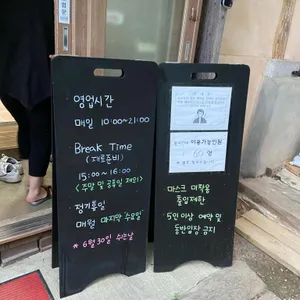 영업시간
매일 10:00~21:00
Break Time
(재료준비)
15:00~16:00
<주말 및 공휴일 제외>
정기휴일
매월 마지막 수요일
* 6월 30일 수요일
이용가능인원
마스크 미착용
출입제한
5인 이상 예약 및
동반입장 금지